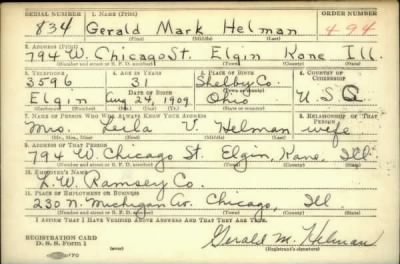 SERIAL NUMBER 1. NAME (Print) ORDER NUMBER
834 Gerald Mark Helman 494
(First) (Middle) (Last)
2. ADDRESS (Print)
794 W. Chicago St. Elgin Kane Ill.
(Number and street or R. F. D. number) (Town) (County) (State)
3. TELEPHONE 4. AGE IN YEARS 5. PLACE OF BIRTH 6. COUNTRY OF CITIZENSHIP
3596 31 Shelby Co.
DATE OF BIRTH
Elgin Aug 24, 1909 Ohio U.S.A
7. NAME OF PERSON WHO WILL ALWAYS KNOW YOUR ADDRESS 8. RELATIONSHIP OF THAT PERSON
Mrs. Leila V. Helman wife
(Mr., Mrs., Miss) (First) (Middle) (Last)
9. ADDRESS OF THAT PERSON
794 W. Chicago St. Elgin, Kane, Ill.
(Number and street or R. F. D. number) (Town) (County) (State)
10. EMPLOYER'S NAME
L. W. Ramsey Co.
11. PLACE OF EMPLOYMENT OR BUSINESS
230 N. Michigan Av. Chicago, Ill.
(Number and street or R. F. D. number) (Town) (County) (State)
I AFFIRM THAT I HAVE VERIFIED ABOVE ANSWERS AND THAT THEY ARE TRUE.
REGISTRATION CARD
D. S. S. Form 1 Gerald M. Helman
(Registrant's signature)